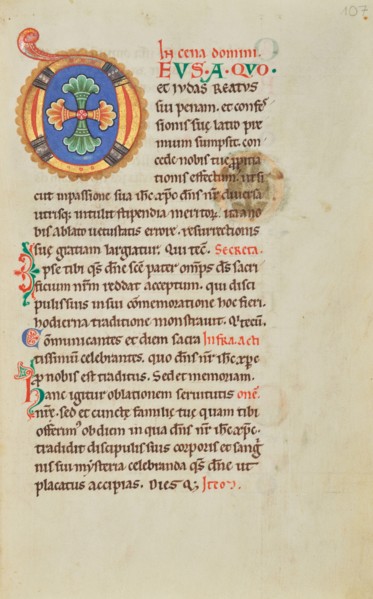 107
In cena domini.
DEVS · A · QVO ·
et iudas reatus
sui penam. et confes
sionis sue latro pre
mium sumpsit. con
cede nobis tue ppitia
tionis effectum. ut si
cut inpassione sua ihc xpc dns nr diuersa
utrisq; intulit stipendia meritor. ita no
bis ablato uetustatis errore. resurrectionis
sue gratiam largiatur. Qui tec. Secreta.
Ipse tibi qs dne sce pater omps ds sacri
ficium nrm reddat acceptum. qui disci
pulis suis in sui comemoratione hoc fieri.
hodierna traditione monstrauit. P
Communicantes et diem sacra Infra acti
tissimum celebrantes. quo dns nr ihc xpc
p nobis est traditus. Sed et memoriam.
Hanc igitur oblationem seruitutis one.
nre. sed et cuncte familie tue quam tibi
offerim' ob diem in qua dns nr ihc xpc.
tradidit discipulis suis corporis et sang
nis sui mysteria celebranda qs dne ut
placatus accipias. Dies q;